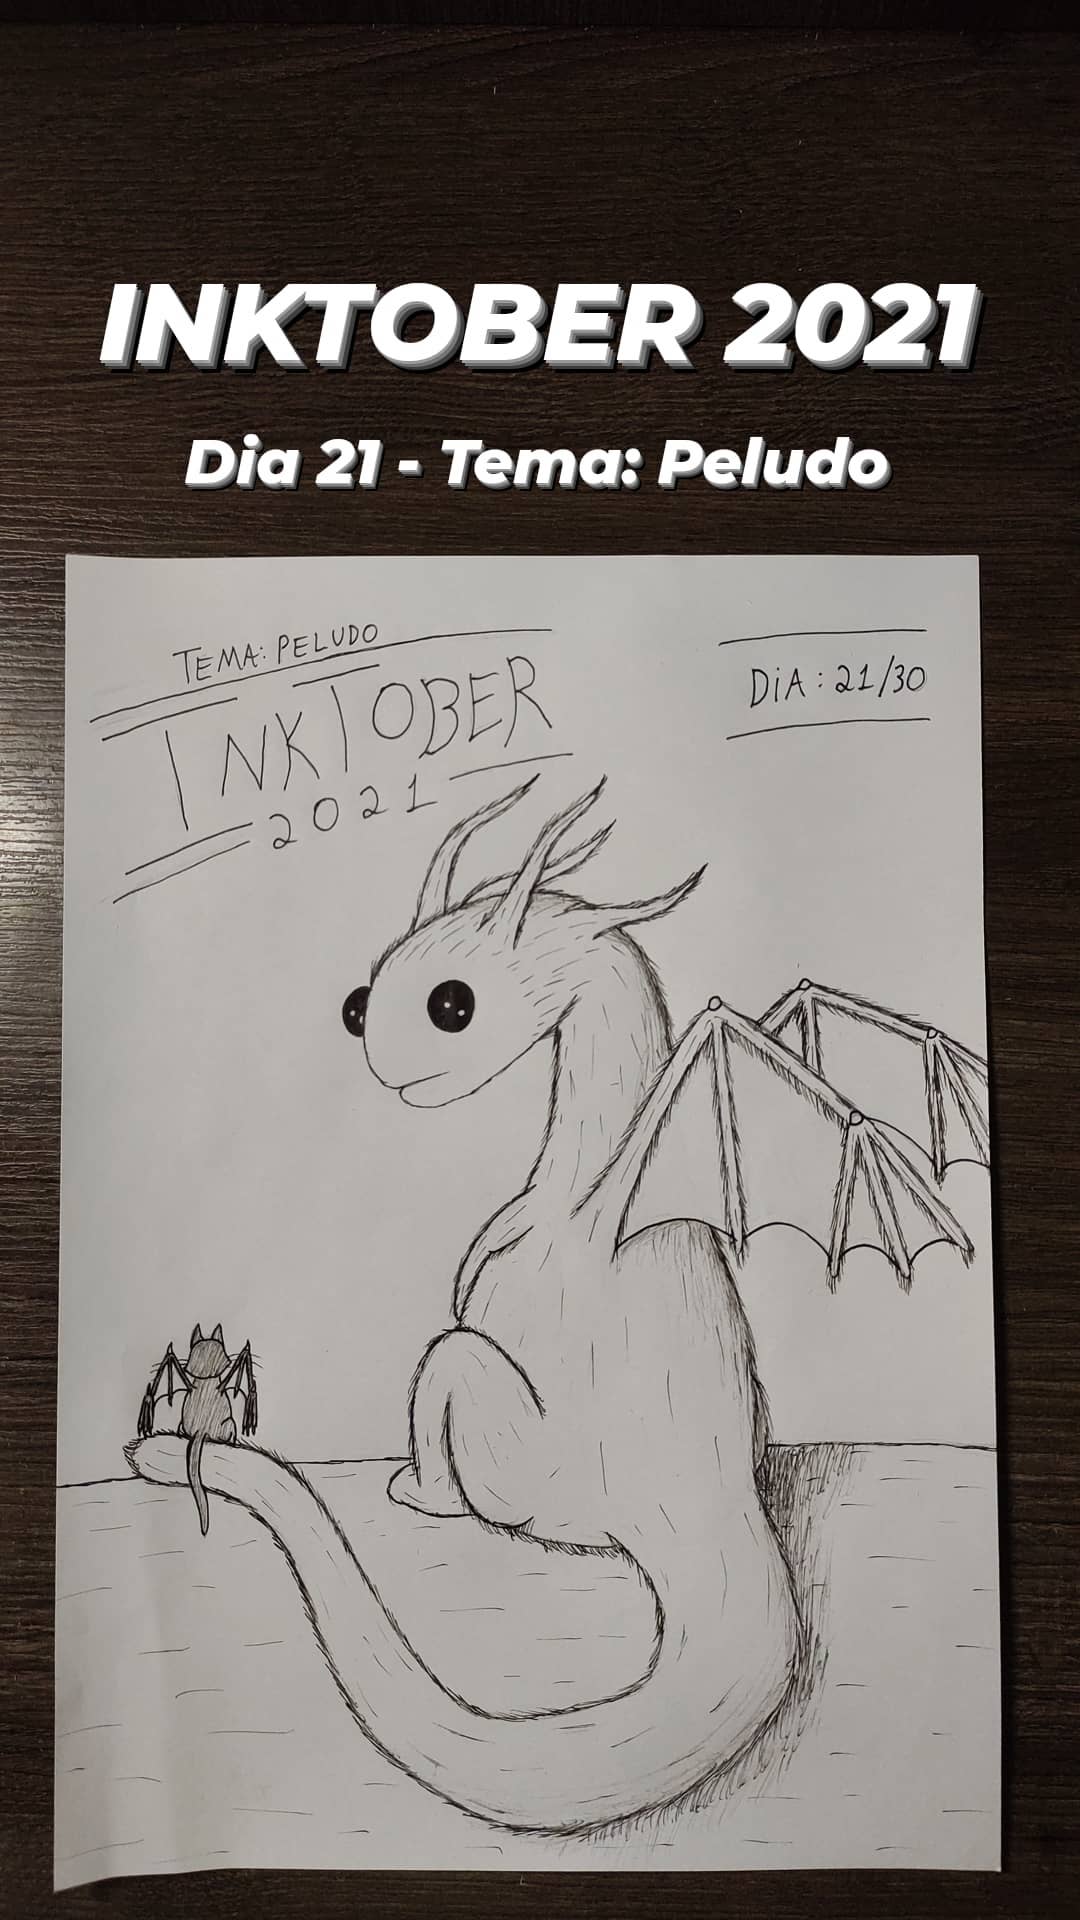 INKTOBER 2021
Dia 21 - Tema: Peludo
TEMA: PELUDO
INKTOBER
2021
DiA : 21/30